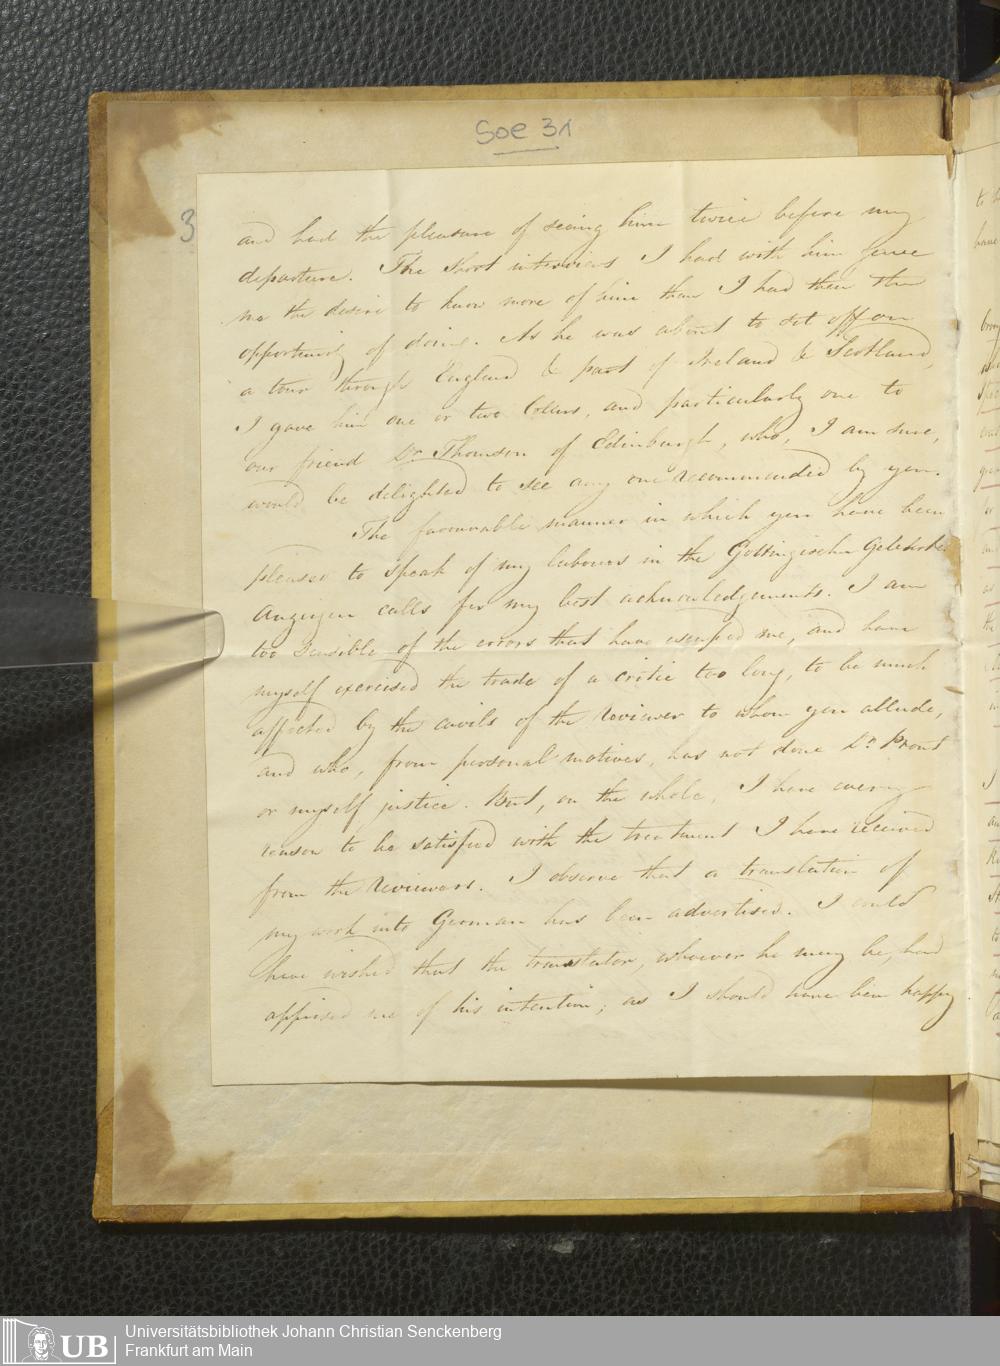 Soe 31
3
and had the pleasure of seeing him twice before my
departure. The short interviews I had with him gave
me the desire to know more of him than I had then the
opportunity of doing. As he was about to set off on
a tour through England & part of Ireland & Scotland,
I gave him one or two letters, and particularly one to
our friend Dr Thomson of Edinburgh, who, I am sure,
would be delighted to see any one recommended by you.
The favourable manner in which you have been
pleased to speak of my labours in the Gottingische Gelehrte
Anzeigen calls for my best acknowledgements. I am
too sensible of the errors that have escaped me, and have
myself exercised the trade of a critic too long, to be much
affected by the cavils of the Reviewer to whom you allude,
and who, from personal motives, has not done Dr Prout
or myself justice. But, on the whole, I have every
reason to be satisfied with the treatment I have received
from the Reviewers. I observe that a translation of
my work into German has been advertised. I could
have wished that the translator, whoever he may be, had
apprised me of his intention; as I should have been happy
UB
Universitätsbibliothek Johann Christian Senckenberg
Frankfurt am Main